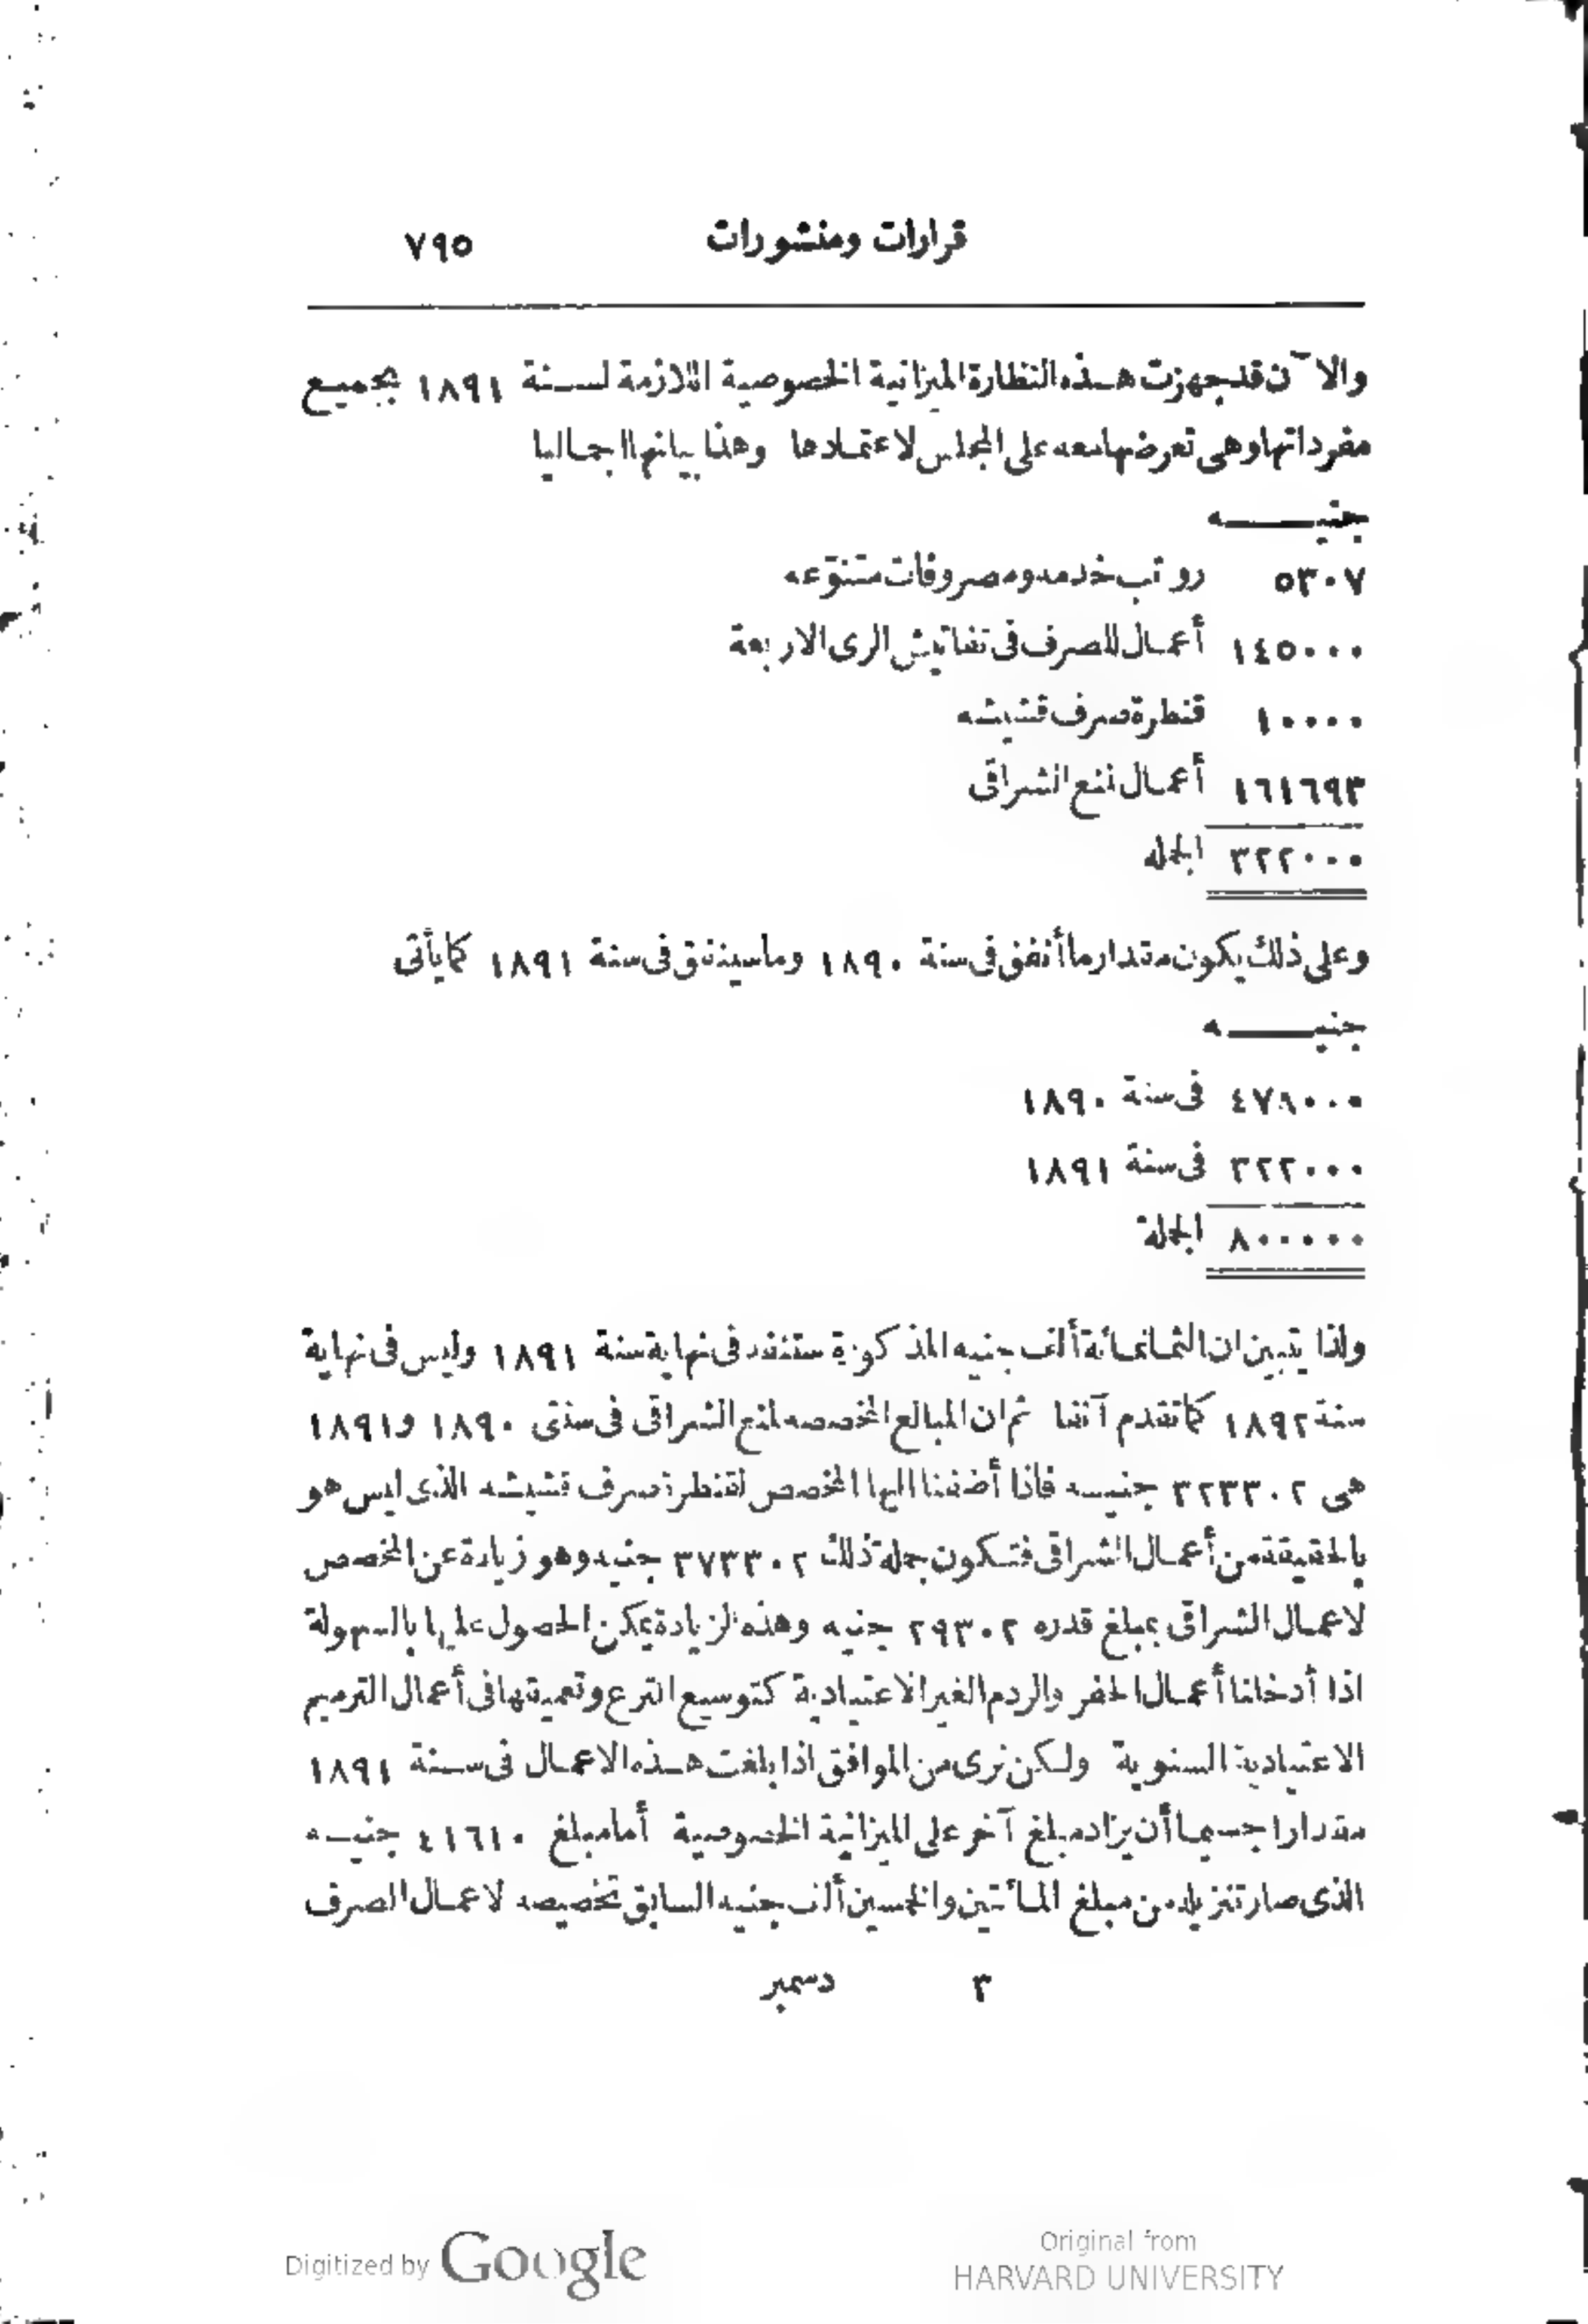 قرارات ومنشورات ٧٩٥
والآن قد جهزت هذه النظارة الميزانية الخصوصية اللازمة لسنة ١٨٩١ بجميع
مفرداتها وهى تعرضها معه على المجلس لاعتمادها وهذا بيانها اجماليا
جنيه
٥٣٠٧ رواتب خدمه ومصروفات متنوّعه
١٤٥٠٠٠ أعمال للصرف فى تفاتيش الرى الاربعة
١٠٠٠٠ قنطرة صرف قشيشه
١٦١٦٩٣ أعمال لمنع الشراقى
٣٢٢٠٠٠ الجمله
وعلى ذلك يكون مقدار ما أنفق فى سنة ١٨٩٠ وما سينفق فى سنة ١٨٩١ كما يأتى
جنيه
٤٧٨٠٠٠ فى سنة ١٨٩٠
٣٢٢٠٠٠ فى سنة ١٨٩١
٨٠٠٠٠٠ الجملة
ولذا يتبين ان الثمانمائة ألف جنيه المذكورة ستنفد فى نهاية سنة ١٨٩١ وليس فى نهاية
سنة ١٨٩٢ كما تقدم آنفا ثم ان المبالغ المخصصه لمنع الشراقى فى سنتى ١٨٩٠ و١٨٩١
هى ٣٢٣٣٠٢ جنيه فاذا أضفنا اليها المخصص لقنطرة صرف قشيشه الذى ليس هو
بالحقيقة من أعمال الشراقى فتكون جملة ذلك ٣٧٣٣٠٢ جنيه وهو زيادة عن المخصص
لاعمال الشراقى بمبلغ قدره ٢٩٣٠٢ جنيه وهذه الزيادة يمكن الحصول عليها بالسهولة
اذا أدخلنا أعمال الحفر والردم الغير الاعتيادية كتوسيع الترع وتعميقها فى أعمال الترميم
الاعتيادية السنوية ولكن نرى من الموافق اذا بلغت هذه الاعمال فى سنة ١٨٩١
مقدارا جسيما أن يزاد مبلغ آخر على الميزانية الخصوصية أما مبلغ ٤١٦١٠ جنيه
الذى صار تنزيله من مبلغ المائتين والخمسين ألف جنيه السابق تخصيصه لاعمال الصرف
٣ دسمبر
Digitized by Google
Original from
HARVARD UNIVERSITY